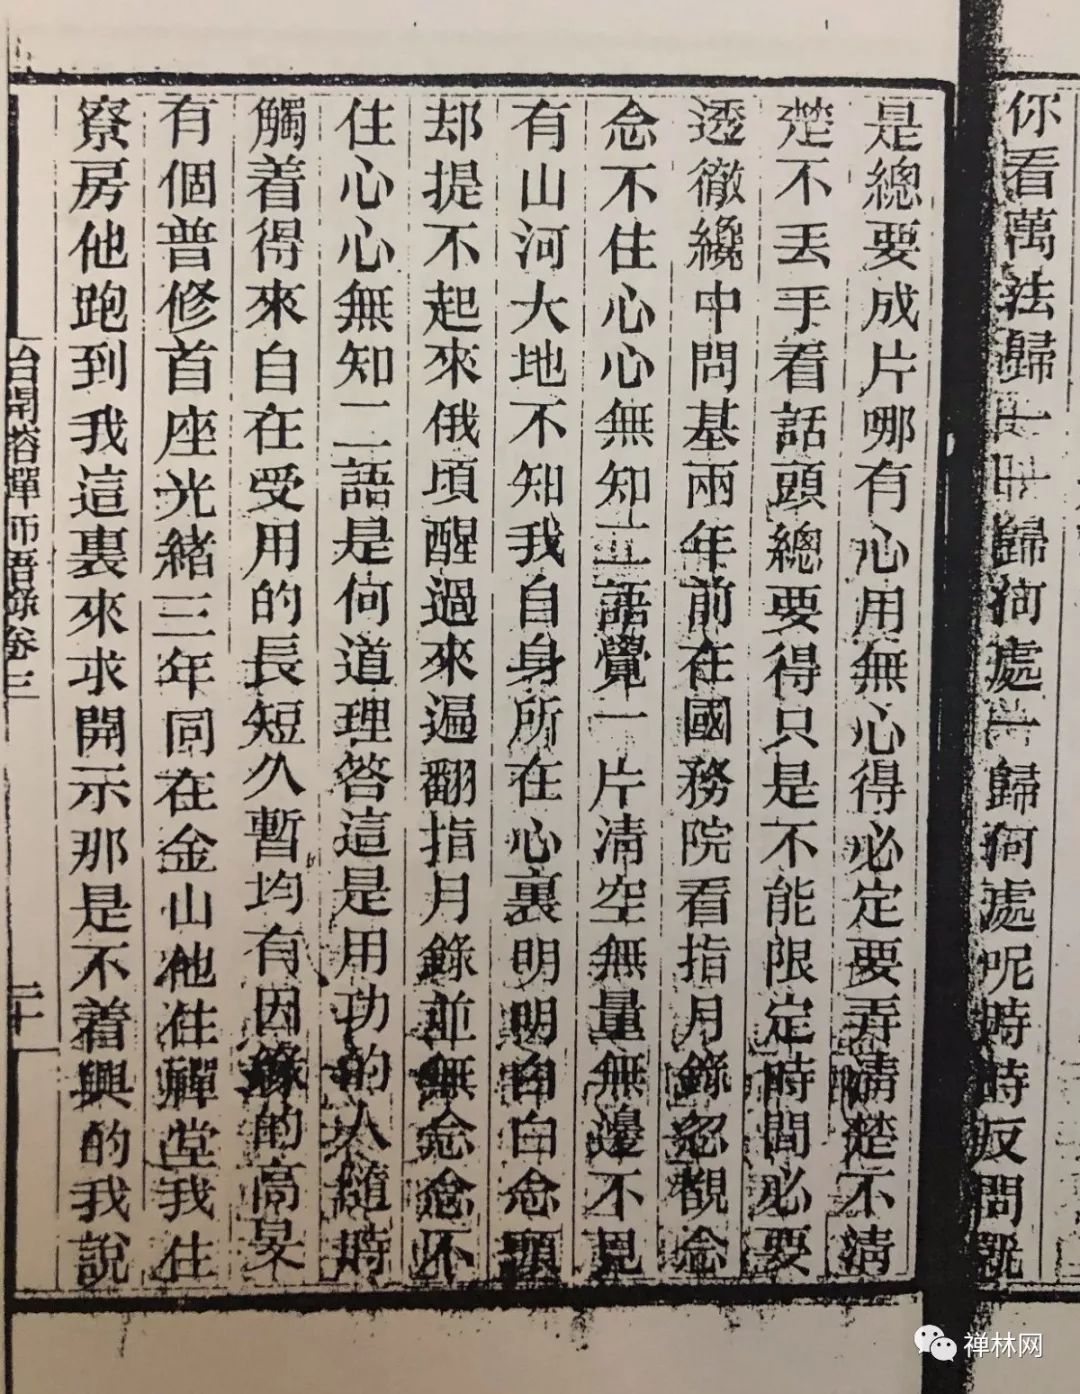 你看萬法歸一一歸何處一歸何處呢時時反問既
是總要成片哪有心用無心得必定要弄清楚不清
楚不丟手看話頭總要得只是不能限定時間必要
透徹纔中問基兩年前在國務院看指月錄忽覩念
念不住心心無知二語覺一片清空無量無邊不見
有山河大地不知我自身所在心裏明明白白念頭
却提不起來俄頃醒過來遍翻指月錄並無念念不
住心心無知二語是何道理答這是用功的人隨時
觸着得來自在受用的長短久暫均有因緣的高旻
有個普修首座光緒三年同在金山他住禪堂我住
寮房他跑到我這裏來求開示那是不着興的我說
冶開鎔禪師語錄卷三
二十
禅林网